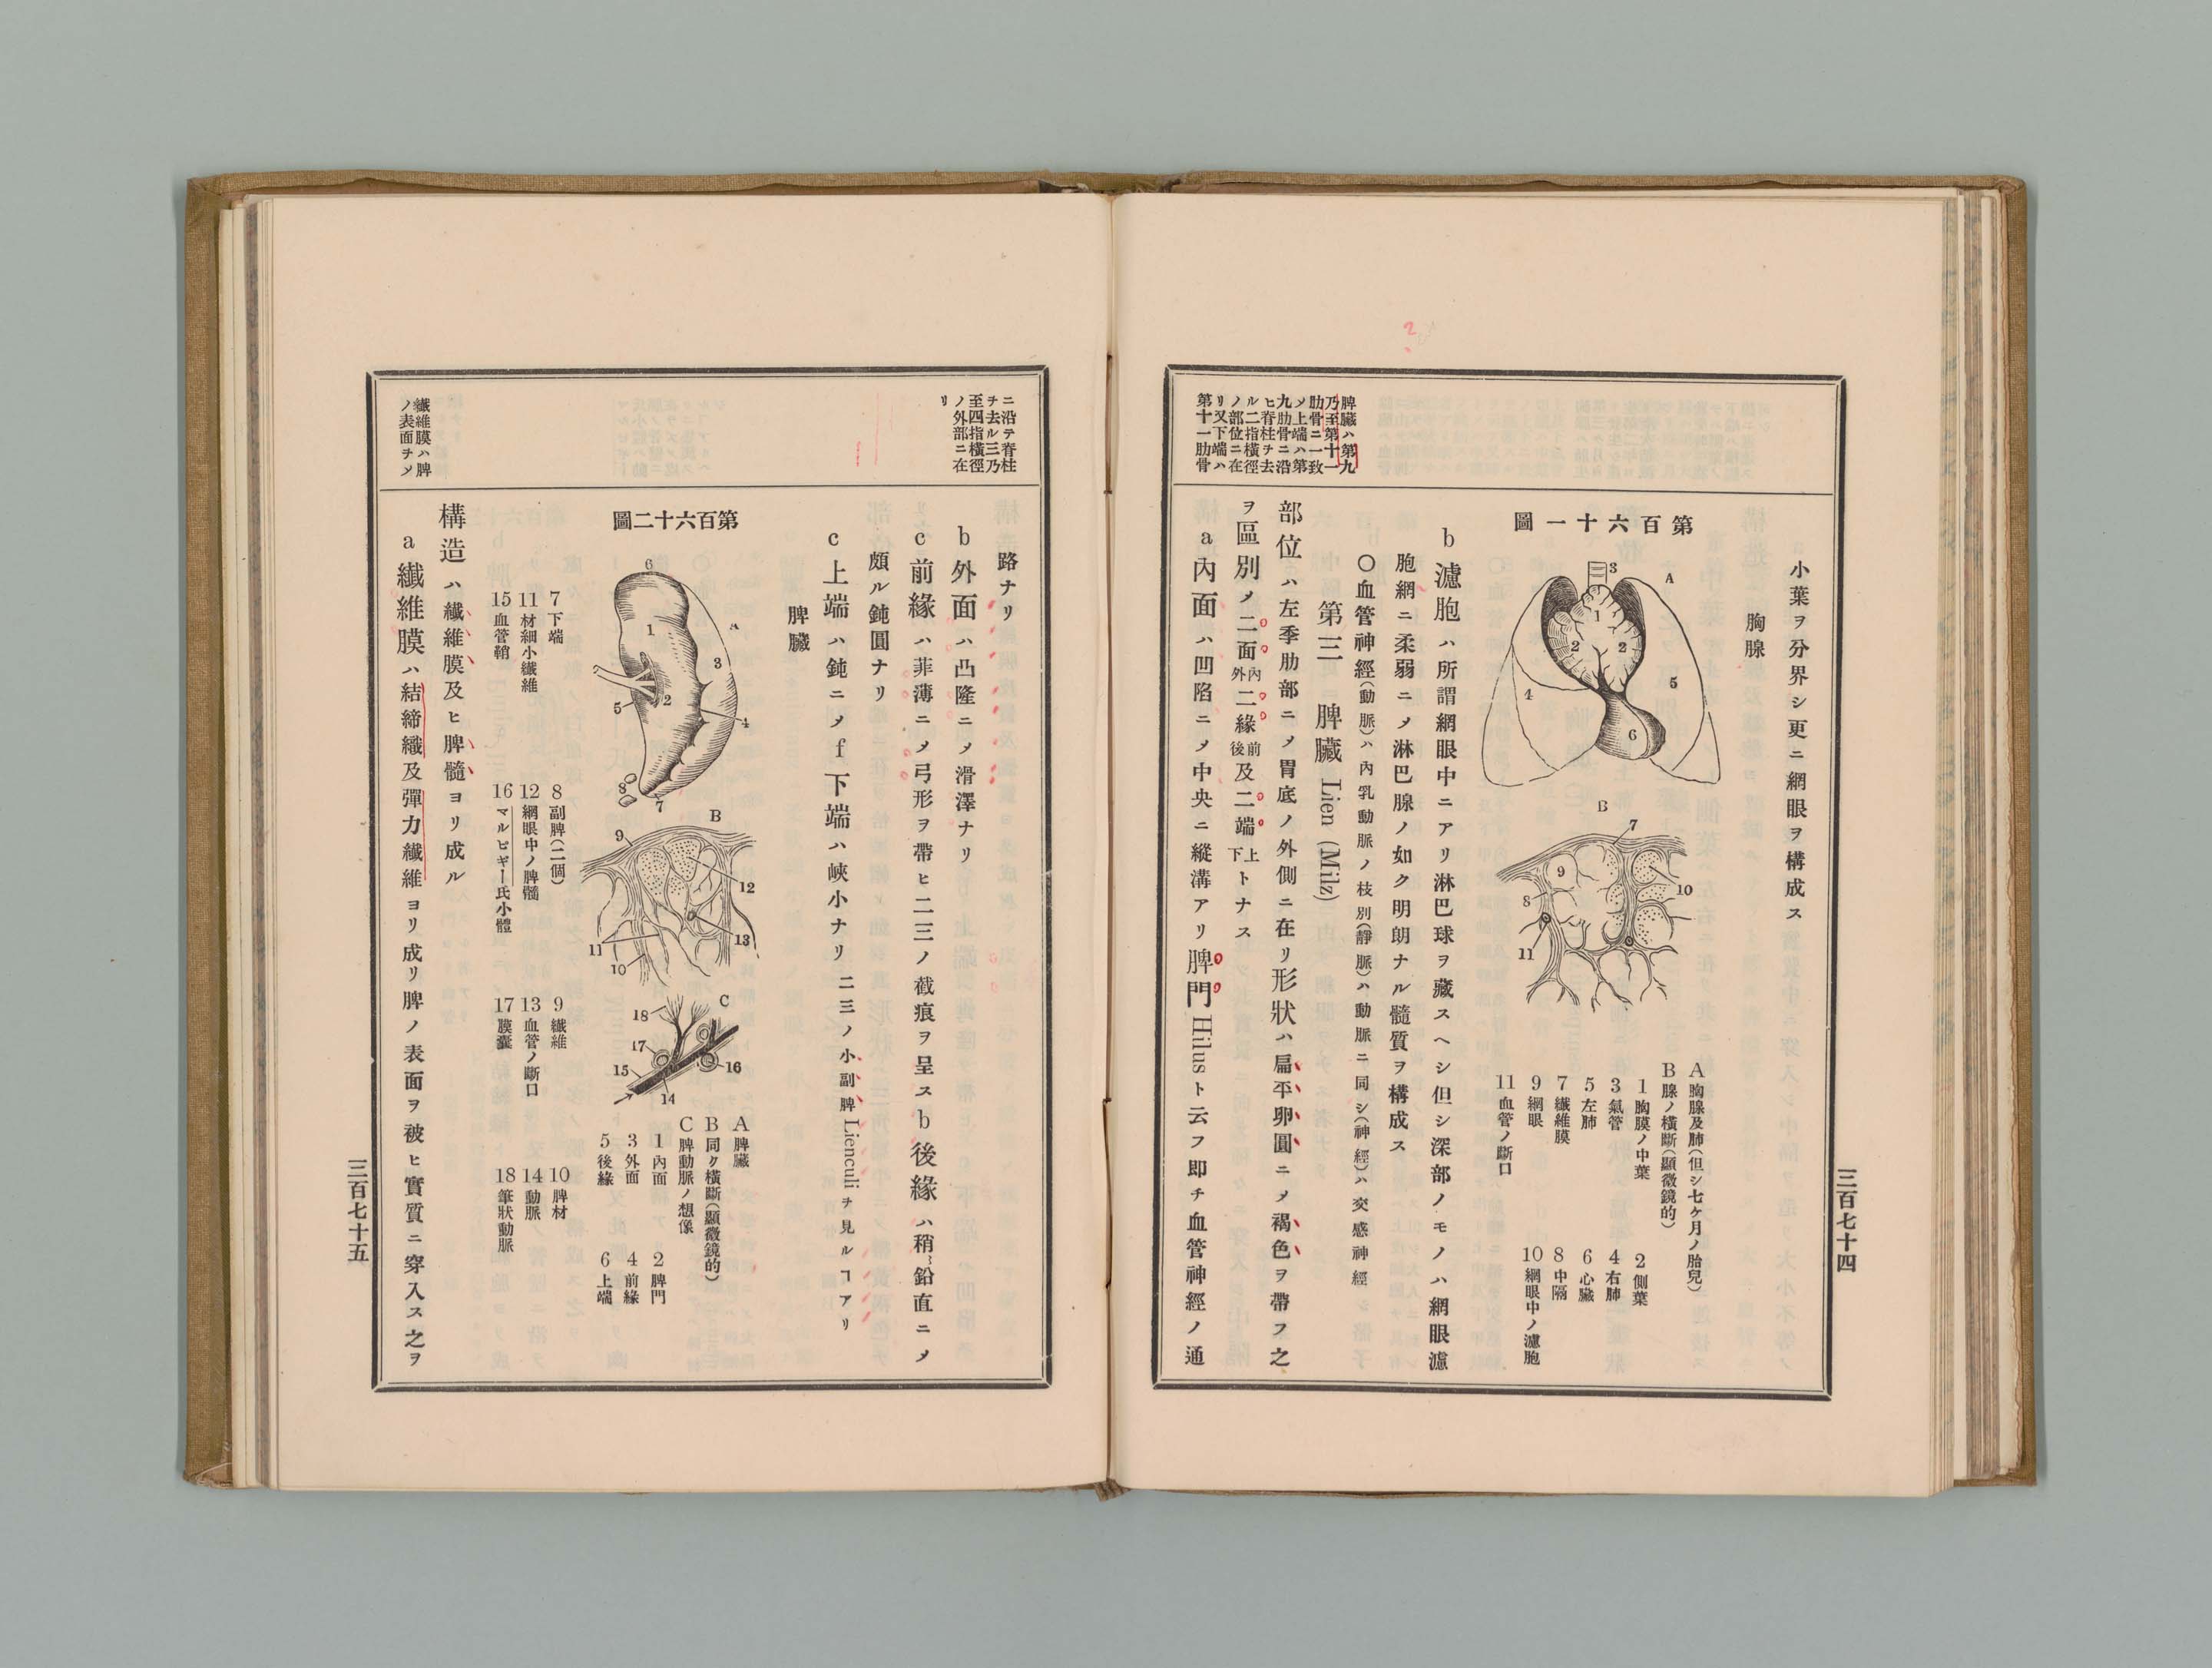 脾臟ハ第九
乃至第十一
肋骨ニ一致
〆上端ハ第
九肋骨ニ沿
ヒ脊柱ヲ去
ル二指橫徑
ノ部位ニ在
リ又下端ハ
第十一肋骨
小葉ヲ分界シ更ニ網眼ヲ構成ス
胸腺
第百六十一圖
A
3
1
2
2
4
5
6
B
7
9
10
8
11
A 胸腺及肺(但シ七ケ月ノ胎兒)
B 腺ノ橫斷(顯微鏡的)
1 胸膜ノ中葉
2 側葉
3 氣管
4 右肺
5 左肺
6 心臟
7 纖維膜
8 中隔
9 網眼
10 網眼中ノ濾胞
11 血管ノ斷口
b 濾胞ハ所謂網眼中ニアリ淋巴球ヲ藏スヘシ但シ深部ノモノハ網眼濾
胞網ニ柔弱ニ〆淋巴腺ノ如ク明朗ナル髓質ヲ構成ス
〇血管神經(動脈)ハ內乳動脈ノ枝別(靜脈)ハ動脈ニ同シ(神經)ハ交感神經
第三 脾臟 Lien (Milz)
部位ハ左季肋部ニ〆胃底ノ外側ニ在リ形狀ハ扁平卵圓ニ〆褐色ヲ帶フ之
ヲ區別〆二面內外二緣前後及二端上下トナス
a 內面ハ凹陷ニ〆中央ニ縱溝アリ脾門 Hilus ト云フ卽チ血管神經ノ通
三百七十四
ニ沿テ脊柱
ヲ去ル三乃
至四指橫徑
ノ外部ニ在
リ
纖維膜ハ脾
ノ表面ヲ〆
路ナリ
b 外面ハ凸隆ニ〆滑澤ナリ
c 前緣ハ菲薄ニ〆弓形ヲ帶ヒ二三ノ截痕ヲ呈ス b 後緣ハ稍鉛直ニ〆
頗ル鈍圓ナリ
c 上端ハ鈍ニ〆 f 下端ハ峽小ナリ二三ノ小副脾 Lienculi ヲ見ルコアリ
脾臟
第百六十二圖
6
A
1
3
2
5
4
8
7
B
9
12
13
11
10
C
18
17
16
15
14
A 脾臟
B 同ク橫斷(顯微鏡的)
C 脾動脈ノ想像
1 內面
2 脾門
3 外面
4 前緣
5 後緣
6 上端
7 下端
8 副脾(二個)
9 纖維
10 脾材
11 材細小纖維
12 網眼中ノ脾髓
13 血管ノ斷口
14 動脈
15 血管鞘
16 マルピギー氏小體
17 膜囊
18 筆狀動脈
構造ハ纖維膜及ヒ脾髓ヨリ成ル
a 纖維膜ハ結締織及彈力纖維ヨリ成リ脾ノ表面ヲ被ヒ實質ニ穿入ス之ヲ
三百七十五